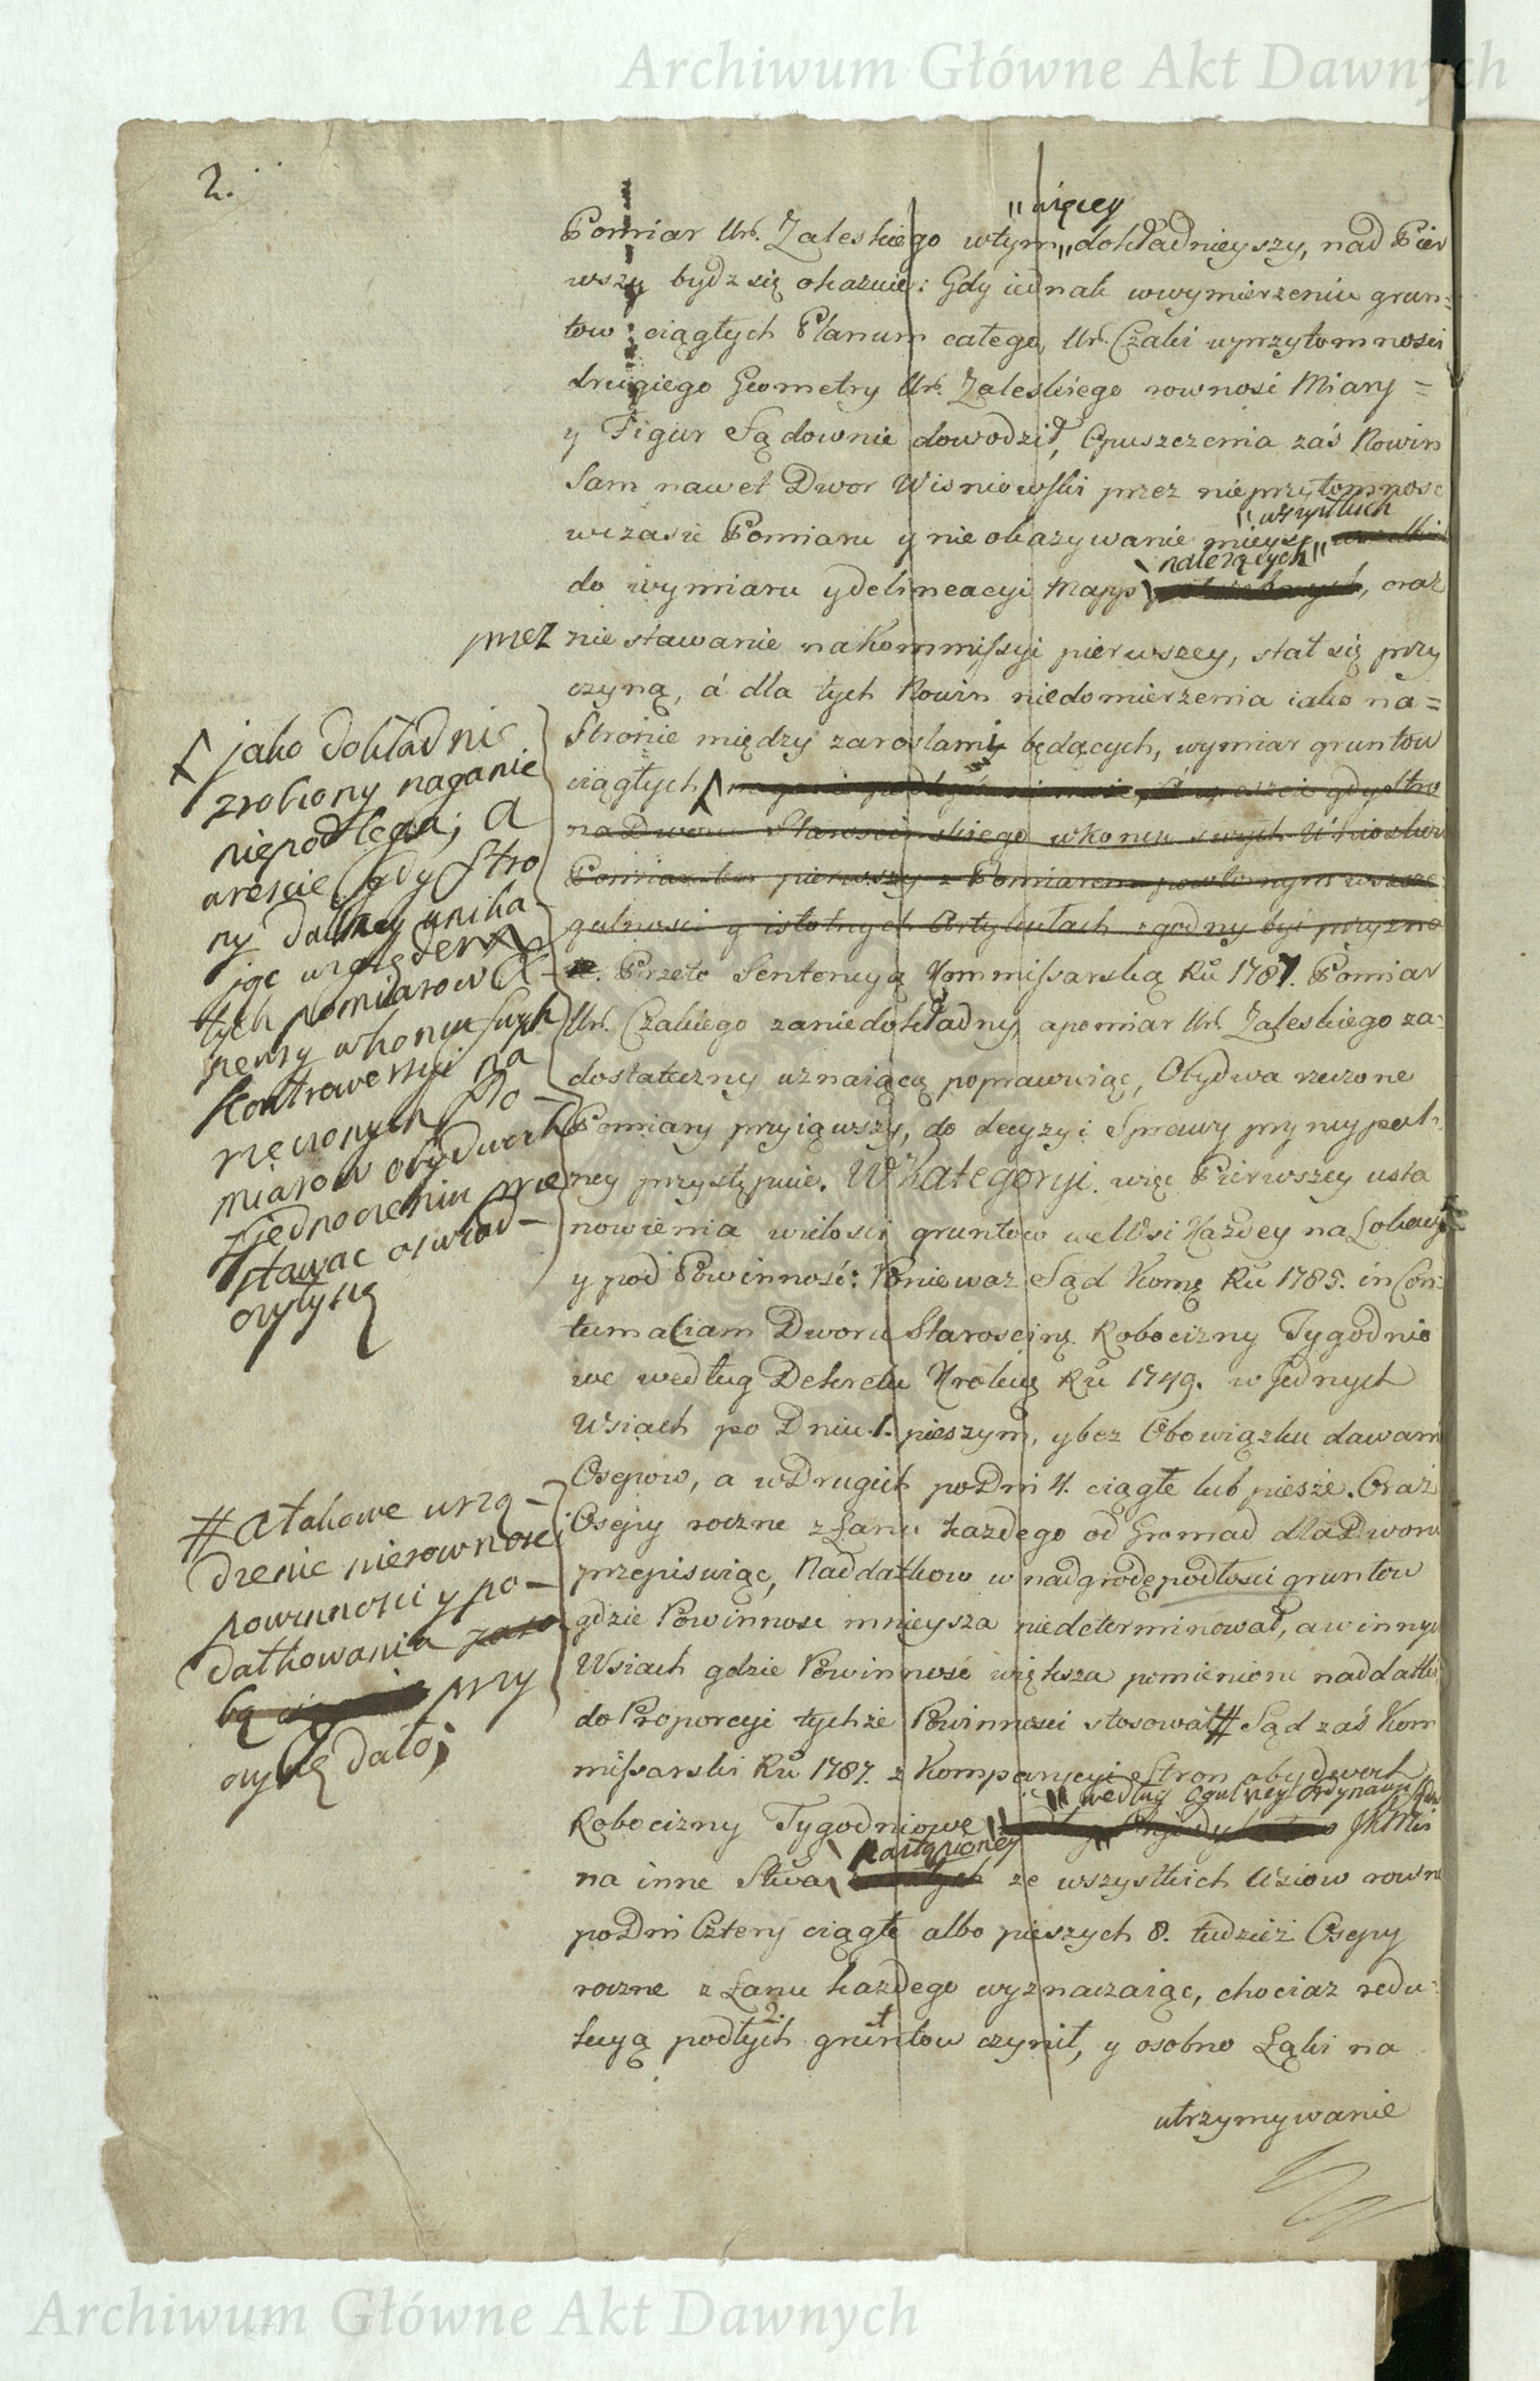 Archiwum Główne Akt Dawnych
2.
"więcey
Pomiar Ur. Zaleskiego wtym,, dokładnieyszy, nad Pier
wszy bydz się okazuie: Gdy iednak wwymierzeniu grun=
tow ciągłych Planum całego, Ur. Czaki wprzytomnosci
drugiego Geometry Ur. Zaleskiego rownosć Miary =
y Figur Sądownie dowodził, Opuszczenia zaś Nowin
Sam nawet Dwor Wisniowski przez nieprzytomnosc
"wszystkich
wczasie Pomiaru y nie okazywanie mieysc
należących"
do wymiaru y delineacyi Mapp, oraz
przez nie stawanie na Kommissyi pierwszey, stał się przy
czyną, á dla tych Nowin niedomierzenia iako na=
Stronie między zaroslami będących, wymiar gruntow
ciągłych naganie podlegać nie może, A wreszcie gdy Stro
na Dworu Starościnskiego wkoncu swych Wnioskow
Pomiar ten pierwszy z Pomiarem powtornym wszcze
gulnosci y istotnych Artykułach zgodny być przyzna
ie. Przeto Sentencyą Kommissarską Ru 1787. Pomiar
Ur. Czakiego zaniedokładny, apomiar Ur. Zaleskiego za=
dostateczny uznaiącą poprawuiąc, Obydwa rzeczone
Pomiary przyiąwszy, do decyzyi Sprawy pryncypal=
ney przystępuie. W Kategoryi więc Pierwszey usta
nowienia wielosci gruntow we Wsi Kazdey na Lokacyi
y pod Powinność: Poniewaz Sąd Komą Ru 1785. in Con=
tumaciam Dworu Starosciną Robocizny Tygodnio
we według Dekretu Krolewg Ru 1749. w jednych
Wsiach po Dniu 1. pieszym, y bez Obowiązku dawani
Osepow, a w Drugich po Dni 4. ciągłe lub piesze. Oraz
Osepy roczne z Łanu każdego od Gromad dla Dworu
przepisuiąc, Naddatkow w nadgrodę podłosci gruntow
gdzie Powinnosc mnieysza niedeterminował, a w innych
Wsiach gdzie Powinność większa pomienione naddatki
do Proporcyi tychże Powinnosci stosował # Sąd zaś Kom
missarski Ru 1787. z Kompanycyi Stron obydwoch
"według Ogulney Ordynacyi
Robocizny Tygodniowe JKMci
nastąpioney
na inne Stwa ze wszystkich Wsiow rowno
po Dni Cztery ciągłe albo pieszych 8. tudzież Osepy
roczne z Łanu każdego wyznaczaiąc, chociaz redu=
kcyą podłych gruntow czynił, y osobno Łąki na
utrzymywanie
jako dokładnie
zrobiony naganie
niepodlega; a
wreście gdy stro
ny dalkey unika
jąc względem
tych pomiarow
pensy wkoncu swych
Kontrowersyi na
rzeczonych Po-
miarow obydwoch
zjednoczeniu prze
stawac oswiad-
czyły się
# a takowe urzą-
dzenie nierownosci
powinnosci y po-
datkowania
przy
czynę dało;
Archiwum Główne Akt Dawnych